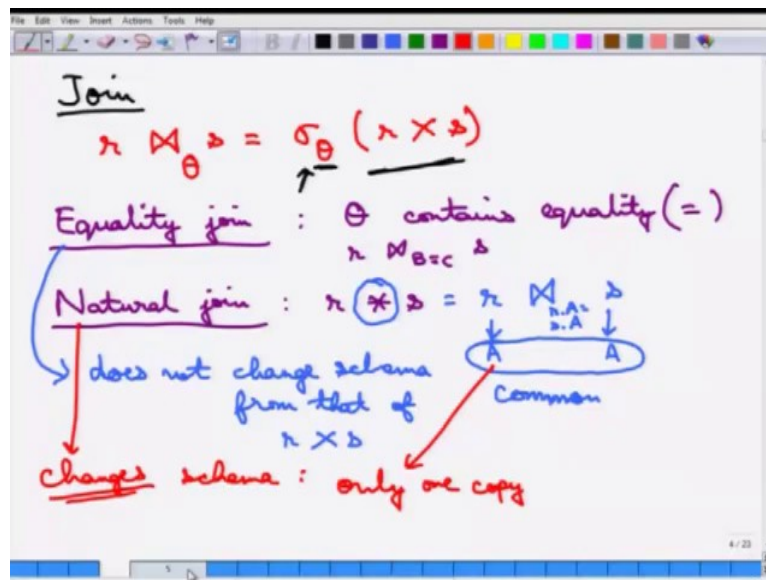 File Edit View Insert Actions Tools Help
Join
r ⋈_θ s = σ_θ (r × s)
Equality join : θ contains equality (=)
r ⋈_{B=C} s
Natural join : r * s = r ⋈_{r.A=s.A} s
A A
does not change schema
common
from that of
r × s
changes schema : only one copy
4 / 23
5